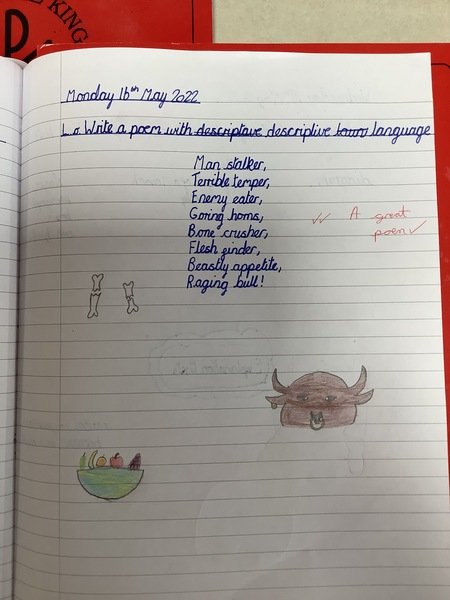 KING
Monday 16th May 2022
L.o. Write a poem with descriptave descriptive language
Man stalker,
Terrible temper,
Enemy eater,
Goring horns,
Bone crusher,
Flesh finder,
Beastly appetite,
Raging bull!
A great
poem